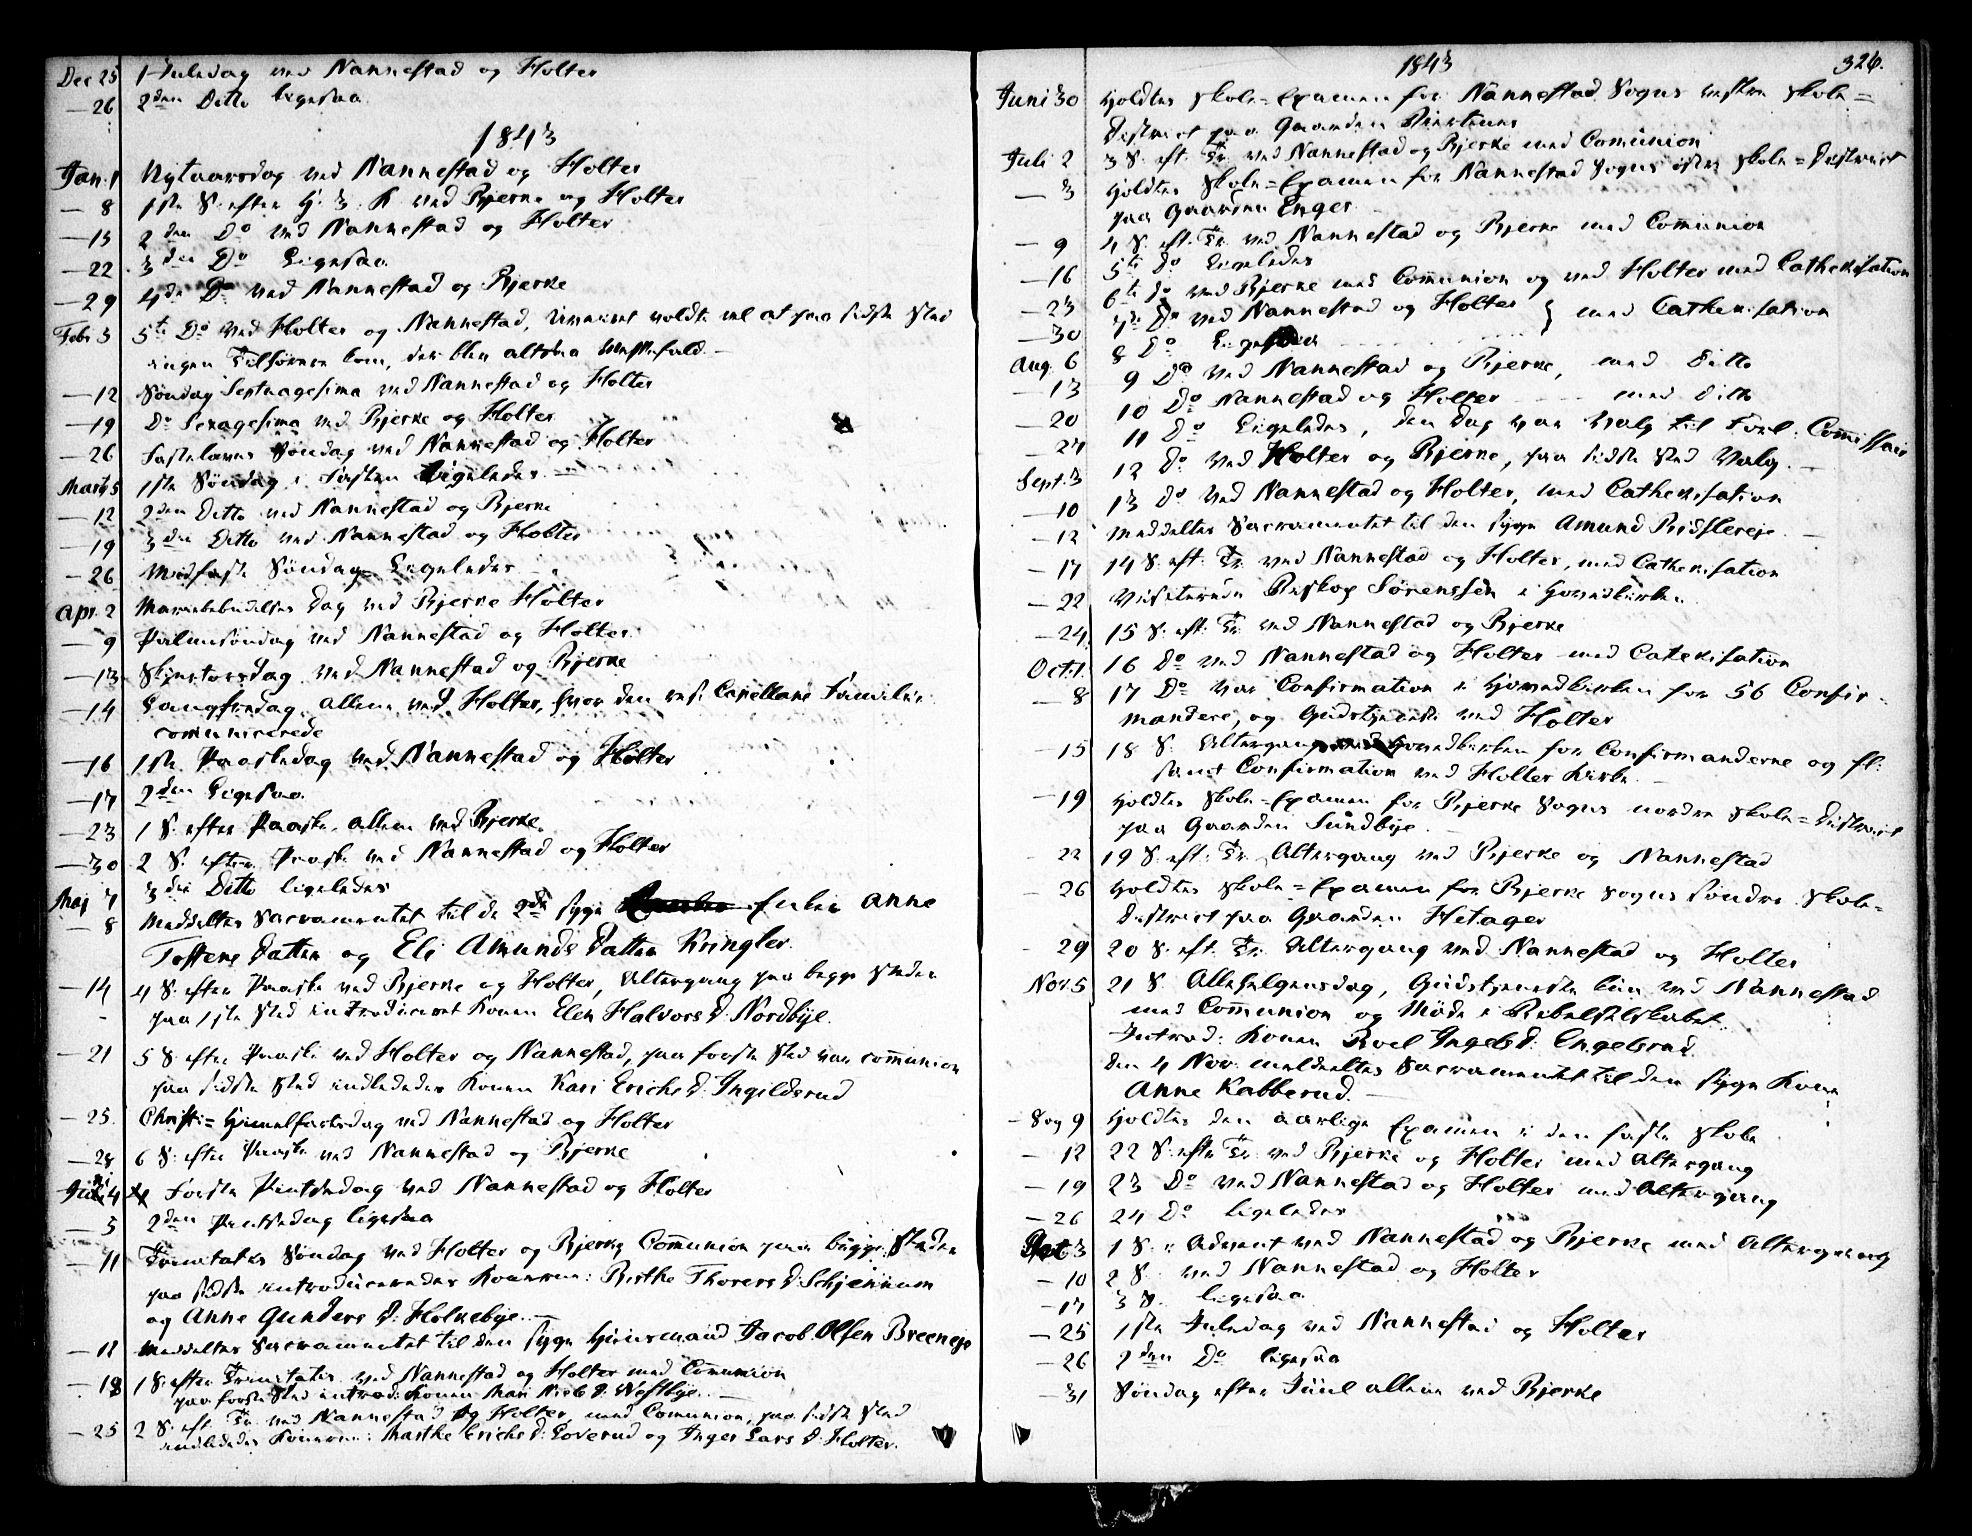 Dec 25 1 Juledag ved Nannestad og Holter
— 26 2den Ditto ligesaa
1843
Jan. 1 Nytaarsdag ved Nannestad og Holter
— 8 1ste S. efter H. 3 K. ved Bjerke og Holter
— 15 2den Do ved Nannestad og Holter
— 22 3die Do Ligesaa
— 29 4de Do ved Nannestad og Bjerke
Febr 5 5te Do ved Holter og Nannestad, voldte vel at paa sidste Sted
ingen Tilhørere kom, der blev altsaa Messefald. —
— 12 Søndag Septuagesima ved Nannestad og Holter
— 19 Do Sexagesima ved Bjerke og Holter
— 26 Fastelavns Søndag ved Nannestad og Holter
Marts 5 1ste Søndag i Fasten Ligeledes —
— 12 2den Ditto ved Nannestad og Bjerke
— 19 3die Ditto ved Nannestad og Holter
— 26 Midfaste Søndag Ligeledes
Apr. 2 Mariæbebudelses Dag ved Bjerke Holter
— 9 Palmesøndag ved Nannestad og Holter
— 13 Skjertorsdag ved Nannestad og Bjerke
— 14 Langfredag allene ved Holter, hvor den res. Capellans Familie
communicerede
— 16 1ste Paaskedag ved Nannestad og Holter
— 17 2den Ligesaa
— 23 1 S. efter Paaske allene ved Bjerke.
— 30 2 S. efter Paaske ved Nannestad og Holter
Maj 7 3die Ditto ligeledes
— 8 Meddeltes Sacramentet til de 2de syge Enker Anne
Tostens Datter og Eli Amunds Datter Kringler.
— 14 4 S. efter Paaske ved Bjerke og Holter, Altergang paa begge Steder
paa 1ste Sted introduceret Konen Elen Halvors D. Nordbye.
— 21 5 S. efter Paaske ved Holter og Nannestad, paa første Sted var communion
paa sidste Sted indlededes Konen Kari Erichs D. Ingilderud
— 25. Christi=Himmelfartsdag ved Nannestad og Holter
— 28 6 S. efter Paaske ved Nannestad og Bjerke
Juni 4 Første Pintsedag ved Nannestad og Holter
— 5 2den Pintsedag ligesaa
— 11 Trinitatis Søndag ved Holter og Bjerke, Communion paa begge Steder
paa sidste introduceredes Konerne: Birthe Thorers D. Schjennum
og Anne Gunders D. Holkebye. —
— 12 Meddeltes Sacramentet til den syge Huusmand Jacob Olsen Breeneje
— 18 1 S. efter Trinitatis ved Nannestad og Holter med Communion
paa første Sted introd. Konen Mari D. Westbye. —
— 25 2 S. eft. Tr. ved Nannestad og Holter, med Communion, paa sidste Sted
indlededes Konerne: Marthe Erichs D. Loverud og Inger Lars D. Holter.
1843 326.
Juni 30 Holdtes Skole=Examen for Nannestad Sogns vestre Skole=
District paa Gaarden
Juli 2 3 S. eft. Tr. ved Nannestad og Bjerke med Communion
— 3 Holdtes Skole=Examen for Nannestad Sogns østre Skole=District
paa Gaarden Enger
— 9 4 S. eft. Tr. ved Nannestad og Bjerke med Communion
— 16 5te Do Ligeledes
— 23 6te Do ved Bjerke med Communion og ved Holter med Cathekisation
— 30 7de Do ved Nannestad og Holter } med Cathekisation
Aug. 6 8 Do Ligesaa
— 13 9 Do ved Nannestad og Bjerke, med Ditto
— 20 10 Do Nannestad og Holter - - - med Ditto
— 27 11 Do Ligeledes, den Dag var Valg til Forl: Commissair
Sept. 3 12 Do ved Holter og Bjerke, paa sidste Sted Valg. —
— 10 13 Do ved Nannestad og Holter, med Cathekisation
— 12 Meddeltes Sacramentet til den syge Amund —
— 17 14 S. eft. Tr. ved Nannestad og Holter, med Cathekisation
— 22 Visiterede Biskop Sørenssen i Hovedkirken
— 24 15 S. eft. Tr. ved Nannestad og Bjerke
Oct. 1. 16 Do ved Nannestad og Holter med Catekisation
— 8 17 Do var Confirmation i Hovedkirken for 56 Confir-
mandere, og Gudstjeneste ved Holter
— 15 18 S. Altergang ved Hovedkirken for Confirmanderne og fl:
samt Confirmation ved Holter Kirke. —
— 19 Holdtes Skole=Examen for Bjerke Sogns nordre Skole=District
paa Gaarden Sundbye. —
— 22 19 S. eft. Tr. Altergang ved Bjerke og Nannestad
— 26 Holdtes Skole=Examen for Bjerke Sogns søndre Skole=
District paa Gaarden Hetager
— 29 20 S. eft. Tr. Altergang ved Nannestad og Holter
Nov. 5 21 S. Allehelgensdag, Gudstjeneste kun ved Nannestad
med Communion og Møde i Bibelselskabet.
Introd: Konen Roel Ingebs D. Engelsrud.
Den 4 Nov. meddeeltes Sacramentet til den syge Kone
Anne Kabberud. —
— Dog 9 Holdtes den aarlige Examen i den faste Skole
— 12 22 S. efter Tr. ved Bjerke og Holter med Altergang
— 19 23 Do ved Nannestad og Holter med Altergang
— 26 24 Do ligeledes
3 1 S. i Advent ved Nannestad og Bjerke med Altergang
— 10 2 S. ved Nannestad og Holter
— 17 3 S. ligesaa
— 25 1ste Juledag ved Nannestad og Holter
— 26 2den Do ligesaa
— 31 Søndag efter Juul allene ved Bjerke